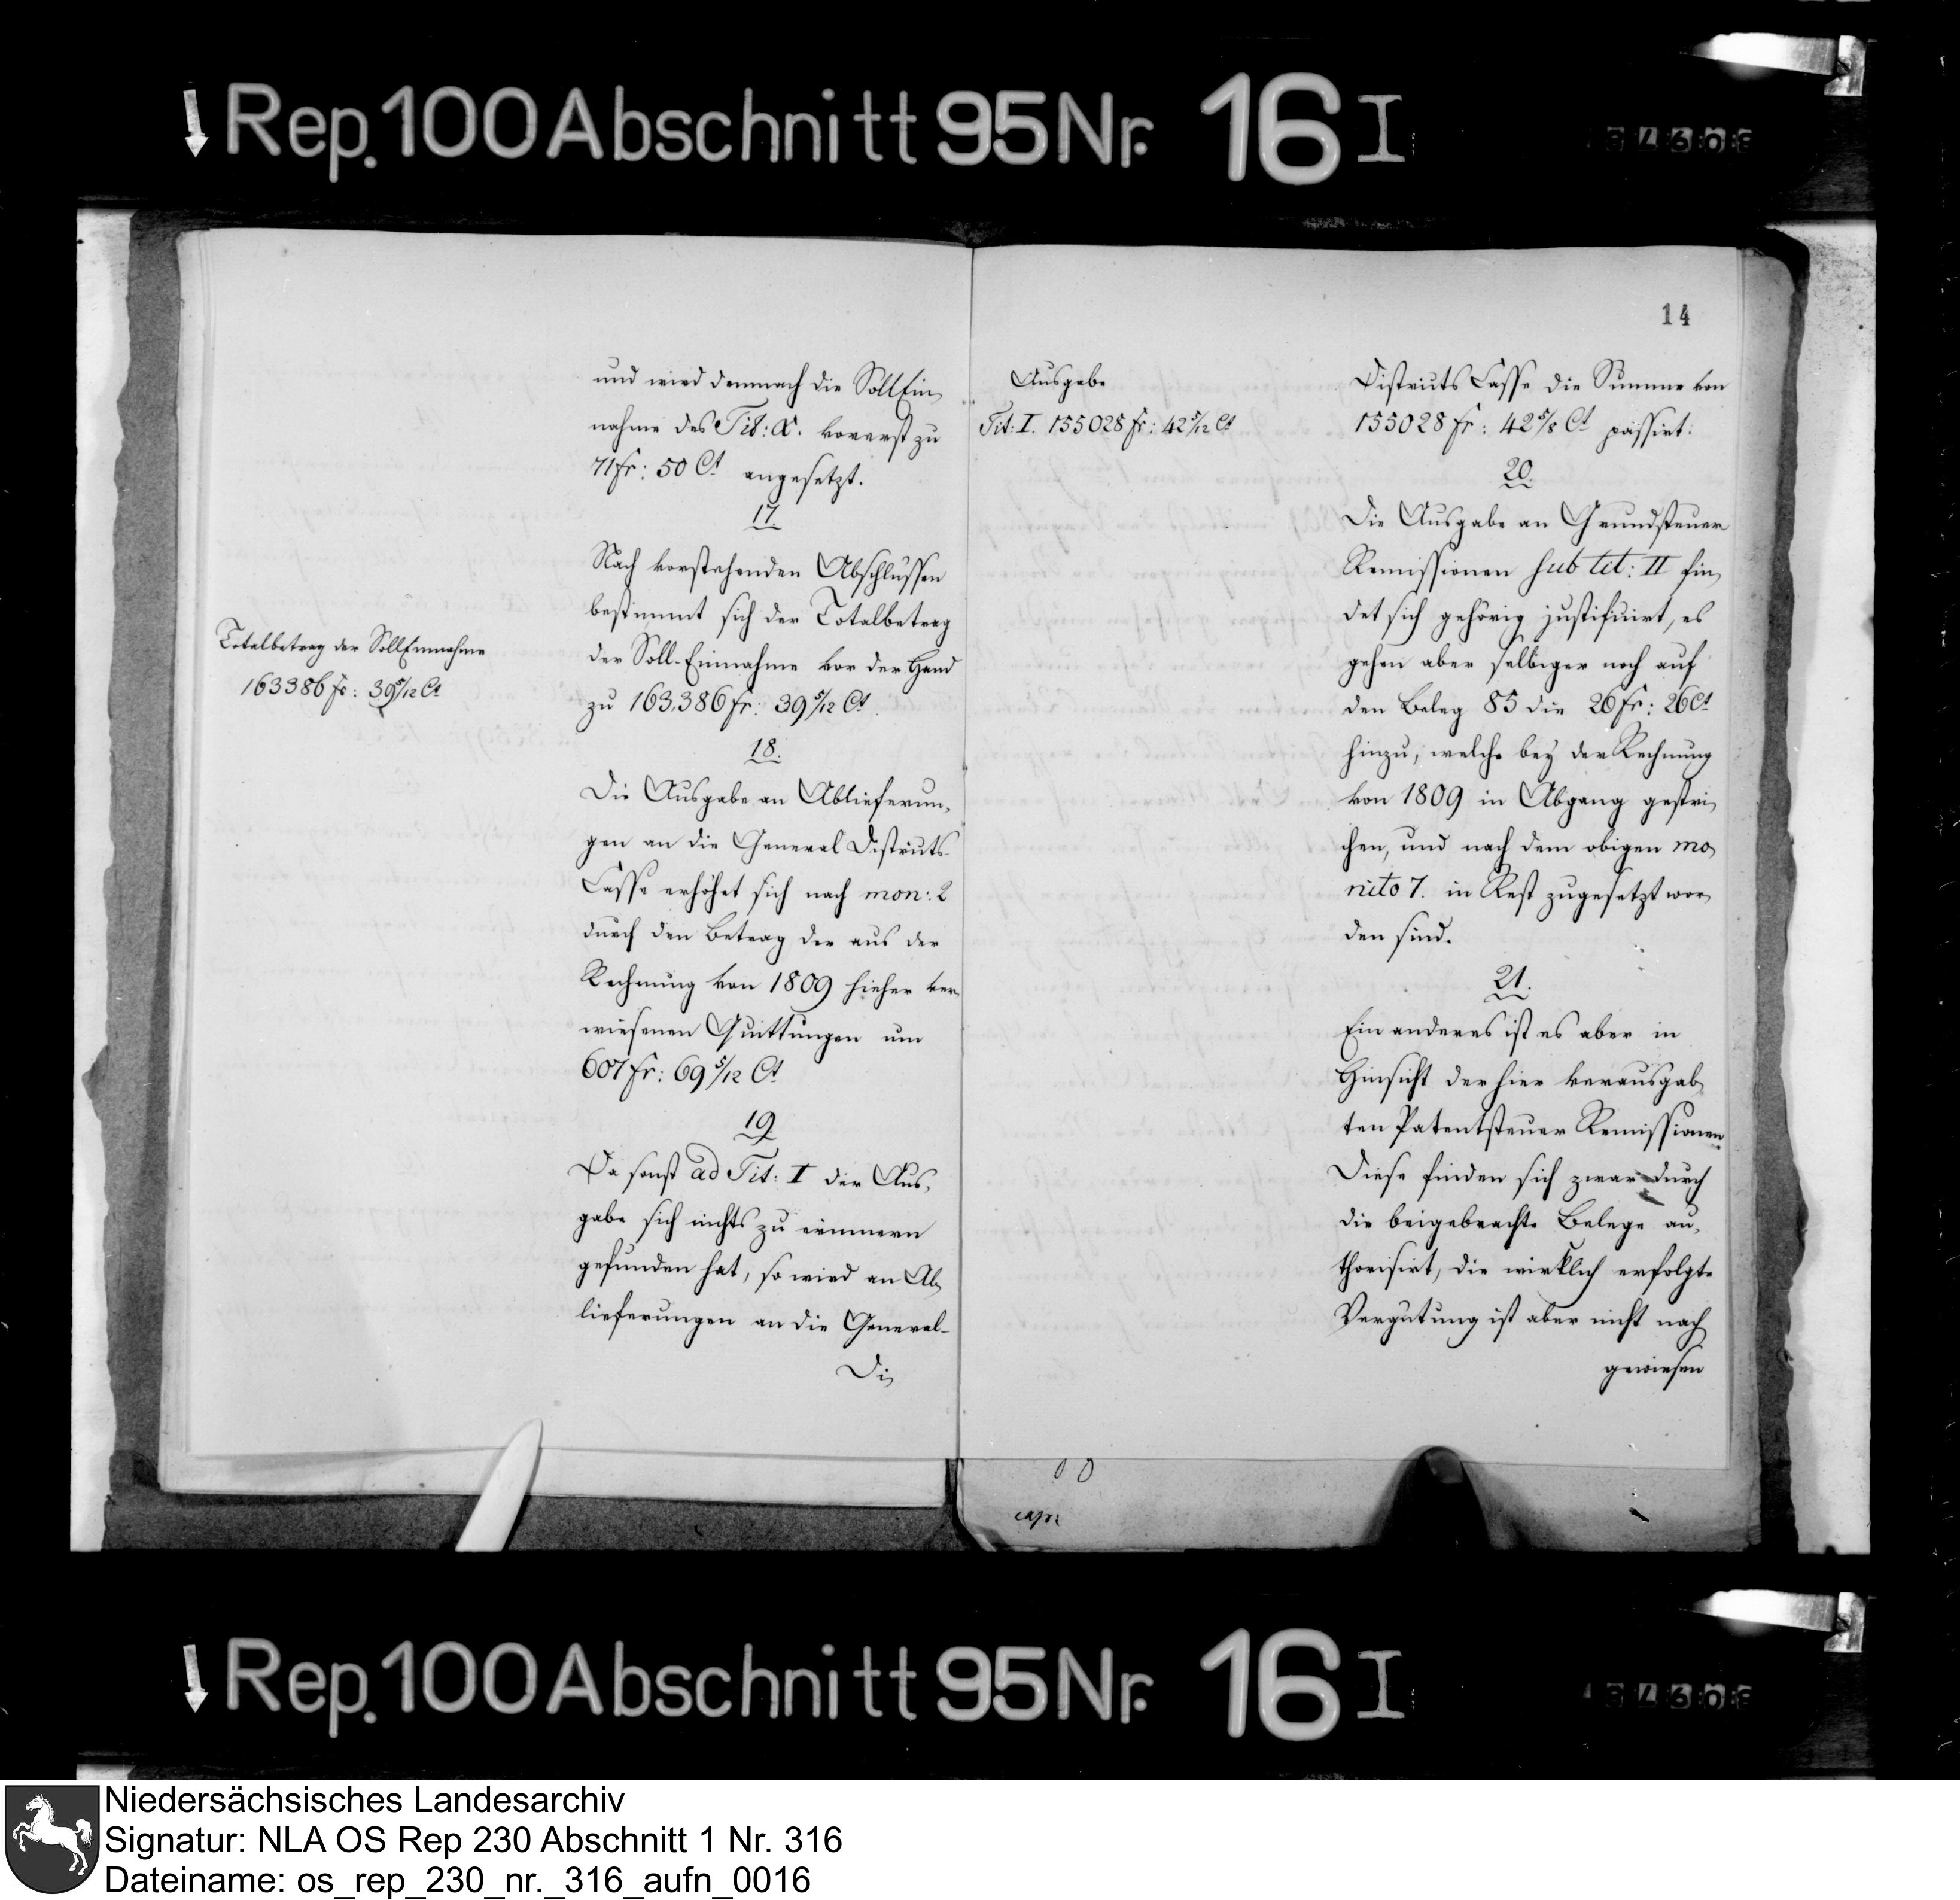 Rep. 100 Abschnitt 95 Nr. 16 I
und wird demnach die Soll Ein,
nahme des Tit: X. vorerst zu
71 fr: 50 Ct angesetzt.
17.
Nach vorstehenden Abschlüssen
bestimmt sich der Totalbetrag
der Soll-Einnahme vor der Hand
zu 163,386 fr: 39 5/12 Ct
Totalbetrag der Soll Einnahme
163386 fr: 39 5/12 Ct
18.
Die Ausgabe an Ablieferun,
gen an die General Districts
Casse erhöhet sich nach mon: 2
durch den Betrag der aus der
Rechnung von 1809 hieher ver,
wiesenen Quittungen um
607 fr: 69 5/12 Ct
19.
Da sonst ad Tit: I der Aus,
gabe sich nichts zu erinnern
gefunden hat, so wird an Ab,
lieferungen an die General-
Di,
14
Ausgabe
Tit: I. 155028 fr: 42 5/12 Ct
Districts Casse die Summe von
155028 fr: 42 5/8 Ct passirt.
20.
Die Ausgabe an Grundsteuer
Remissionen sub tit: II fin,
det sich gehörig justificirt, es
gehen aber selbiger noch auf
den Beleg 85 die 26 fr: 26 Ct
hinzu, welche bey der Rechnung
von 1809 in Abgang gestri,
chen, und nach dem obigen mo,
nito 7. in Rest zugesetzt wor,
den sind.
21.
Ein anderes ist es aber in
Hinsicht der hier verausgab,
ten Patentsteuer Remissionen.
Diese finden sich zwar durch
die beigebrachte Belege au,
thorisirt, die wirklich erfolgte
Vergutung ist aber nicht nach
gewiesen
Rep. 100 Abschnitt 95 Nr. 16 I
Niedersächsisches Landesarchiv
Signatur: NLA OS Rep 230 Abschnitt 1 Nr. 316
Dateiname: os_rep_230_nr._316_aufn_0016